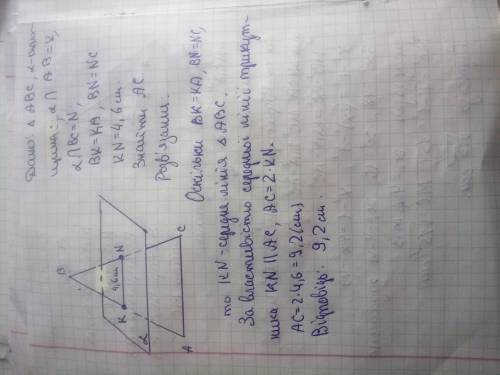 Дано: △ ABC, α-пло-
щина, α ∩ AB = K,
α ∩ BC = N,
BK = KA, BN = NC
KN = 4,6 см.
Знайти AC.
Розв'язання.
Оскільки BK = KA, BN = NC,
то KN - середня лінія △ ABC.
За властивістю середньої лінії трикут-
ника KN || AC, AC = 2·KN.
AC = 2·4,6 = 9,2 (см)
Відповідь: 9,2 см.
B
K
4,6 см
N
α
A
C